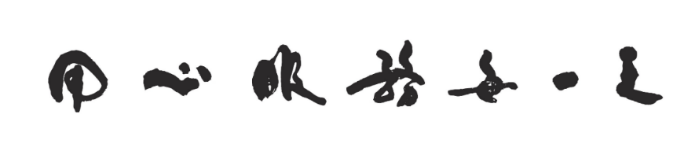 用心服務每一天